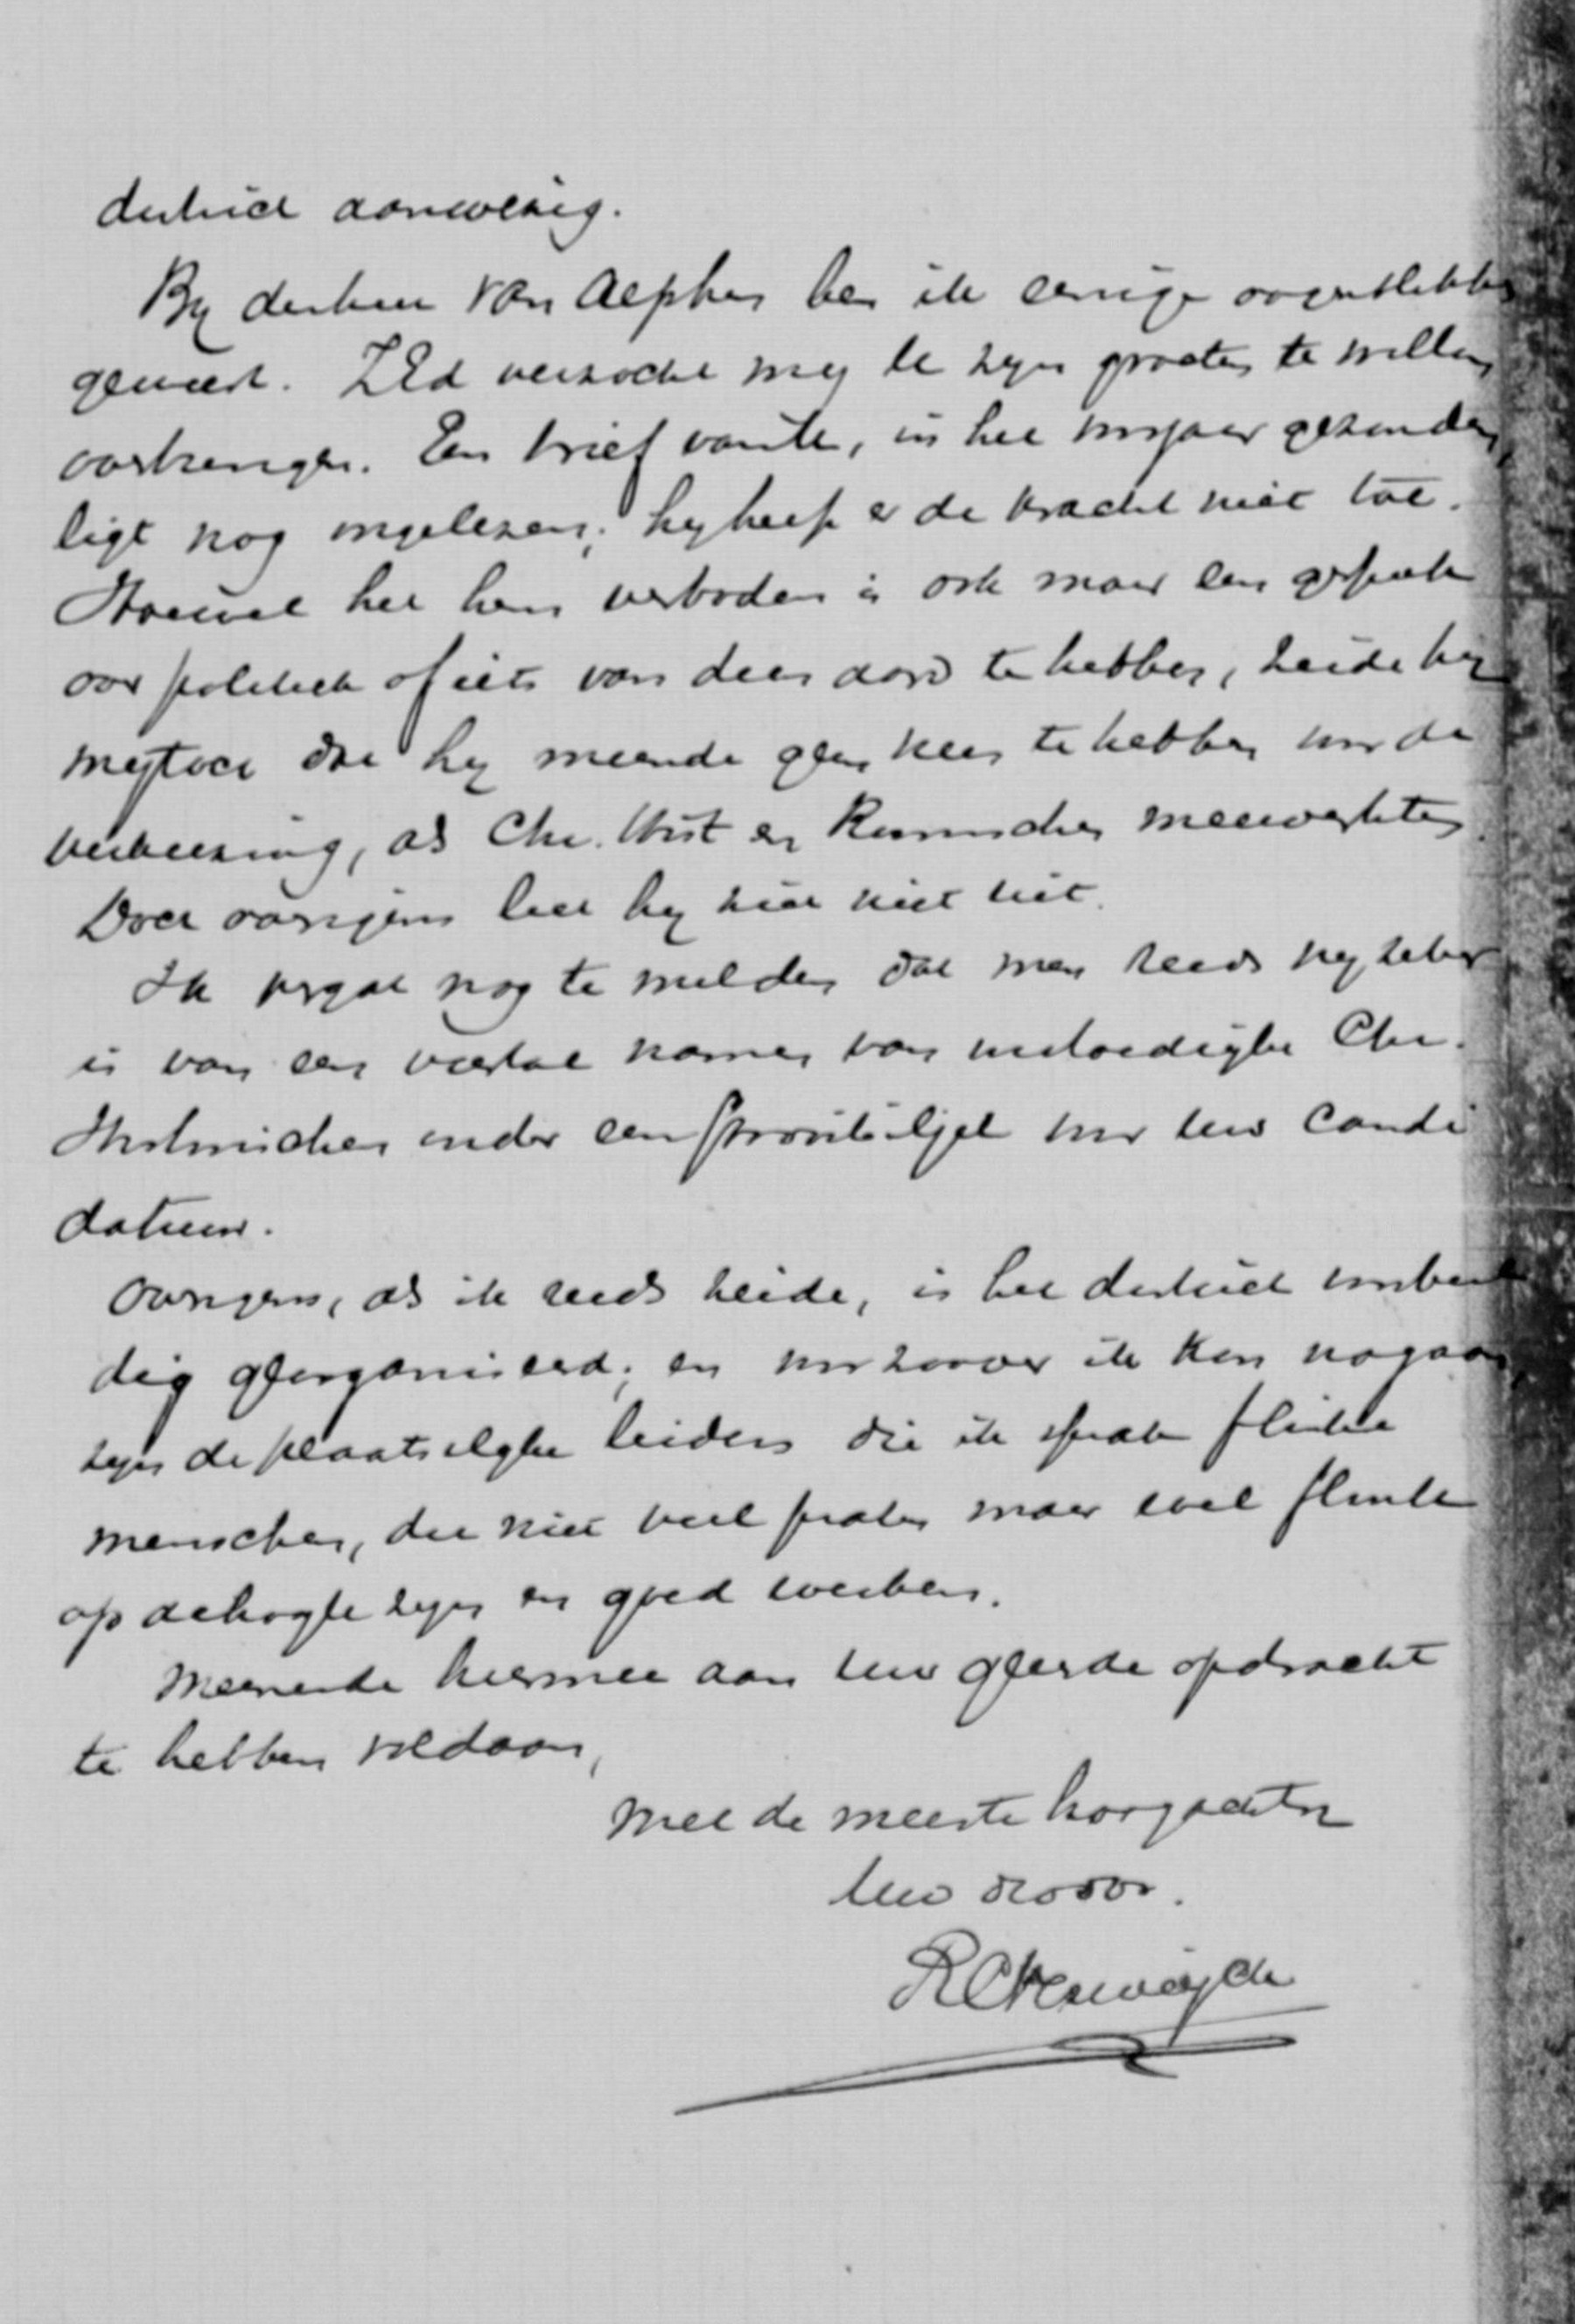 district aanwezig.
By den heer van Alphen ben ik eenige oogenblikken
geweest. ZEd verzocht my U zyn groeten te willen
overbrengen. Een brief van U, in het voorjaar gezonden,
ligt nog ongelezen; hy heeft er de kracht niet toe.
Hoewel het hem verboden is ook maar een gesprek
over politiek of iets van dien aard te hebben, zeide hy
my toch dat hy meende geen kans te hebben voor de
verkiezing, als Chr. Hist en Roomschen meewerkten.
Doch overigens liet hy zich niet uit.
Ik vergat nog te melden dat men reeds
is van een viertal namen van invloedryke Chr.
Historischen onder een strooibiljet voor Uw candi
datuur.
Overigens, als ik reeds zeide, is het district
dig georganiseerd; en voor zoover ik kon nagaan
zyn de plaatselyke leiders die ik sprak flinke
menschen, die niet veel praten maar wel flink
op de hoogte zyn en goed werken.
Meenende hiermee aan Uw geëerde opdracht
te hebben voldaan,
Met de meeste hoogachting
Uw